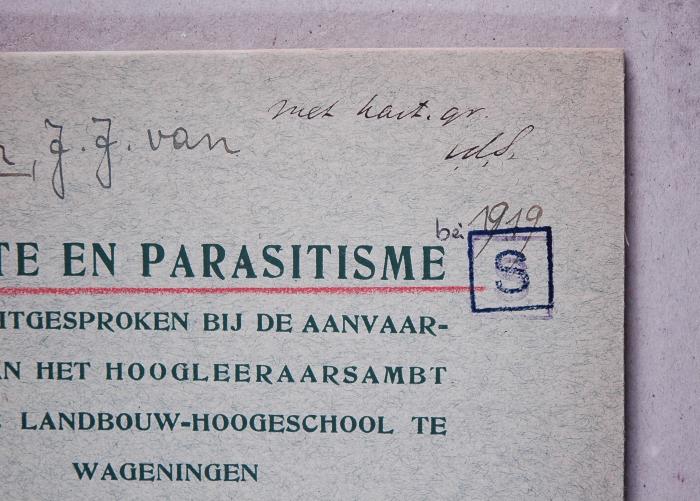 met hart. gr.
v.d.S.
, J. J. van
bei 1919
TE EN PARASITISME
S
ITGESPROKEN BIJ DE AANVAAR-
N HET HOOGLEERAARSAMBT
LANDBOUW-HOOGESCHOOL TE
WAGENINGEN